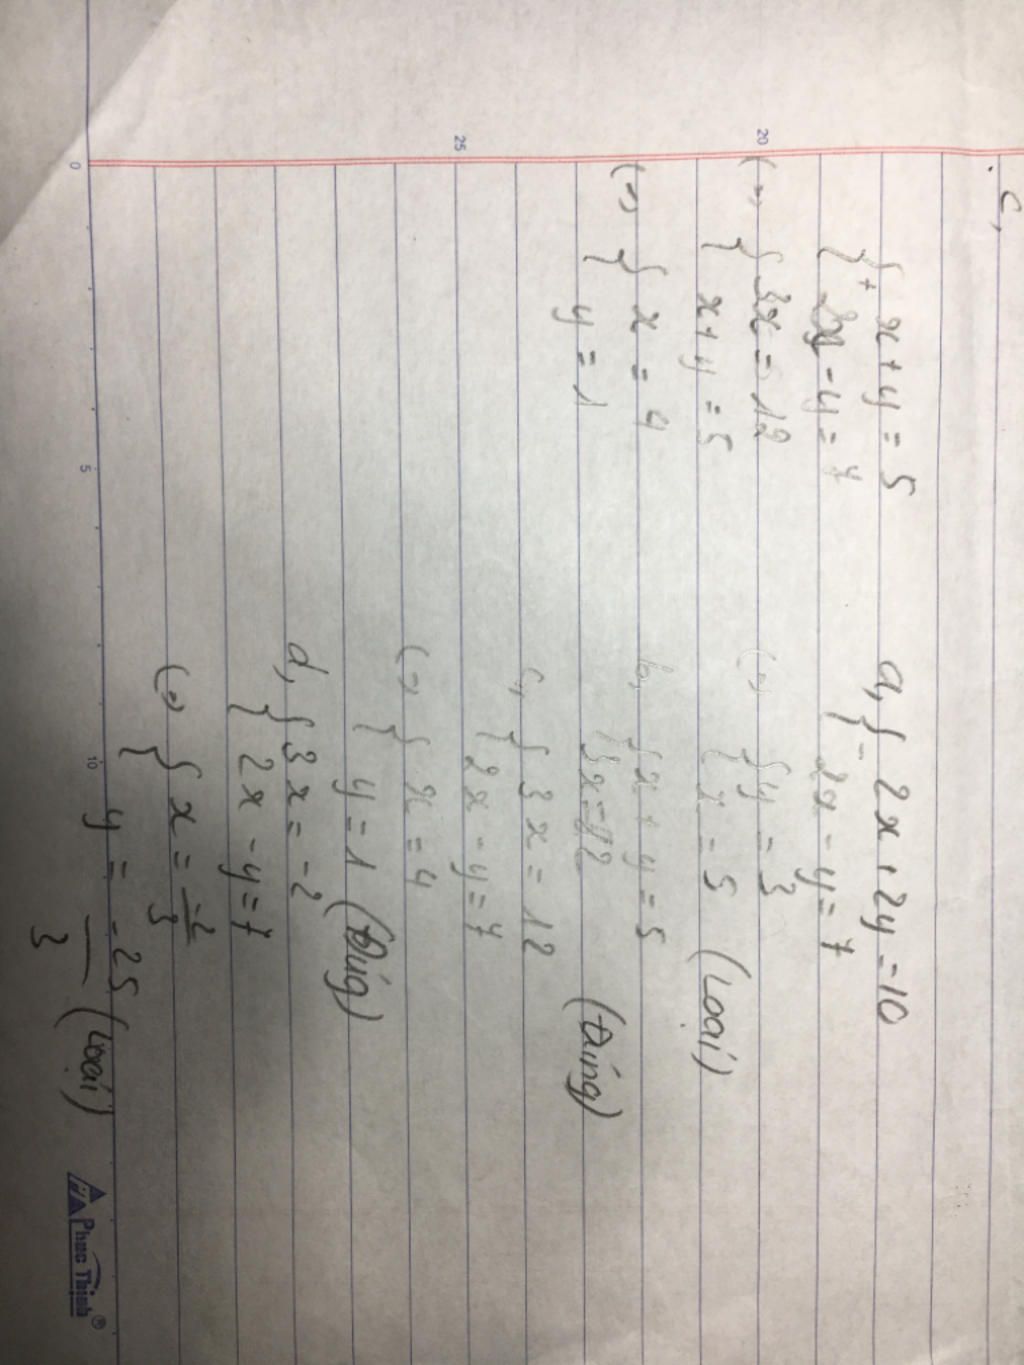 c,
{ x + y = 5
+
2x - y = 7
(=) { 3x = 12
x + y = 5
(=) { x = 4
y = 1
a, { 2x + 2y = 10
-
2x - y = 7
(=) { y = 3
x = 5 (Loại)
b, { x + y = 5
3x = 12 (Đúng)
c, { 3x = 12
2x - y = 7
(=) { x = 4
y = 1 (Đúng)
d, { 3x = -2
2x - y = 7
(=) { x = -2/3
y = -25/3 (Loại)
20
25
0
5
10
Phuc Thinh ®